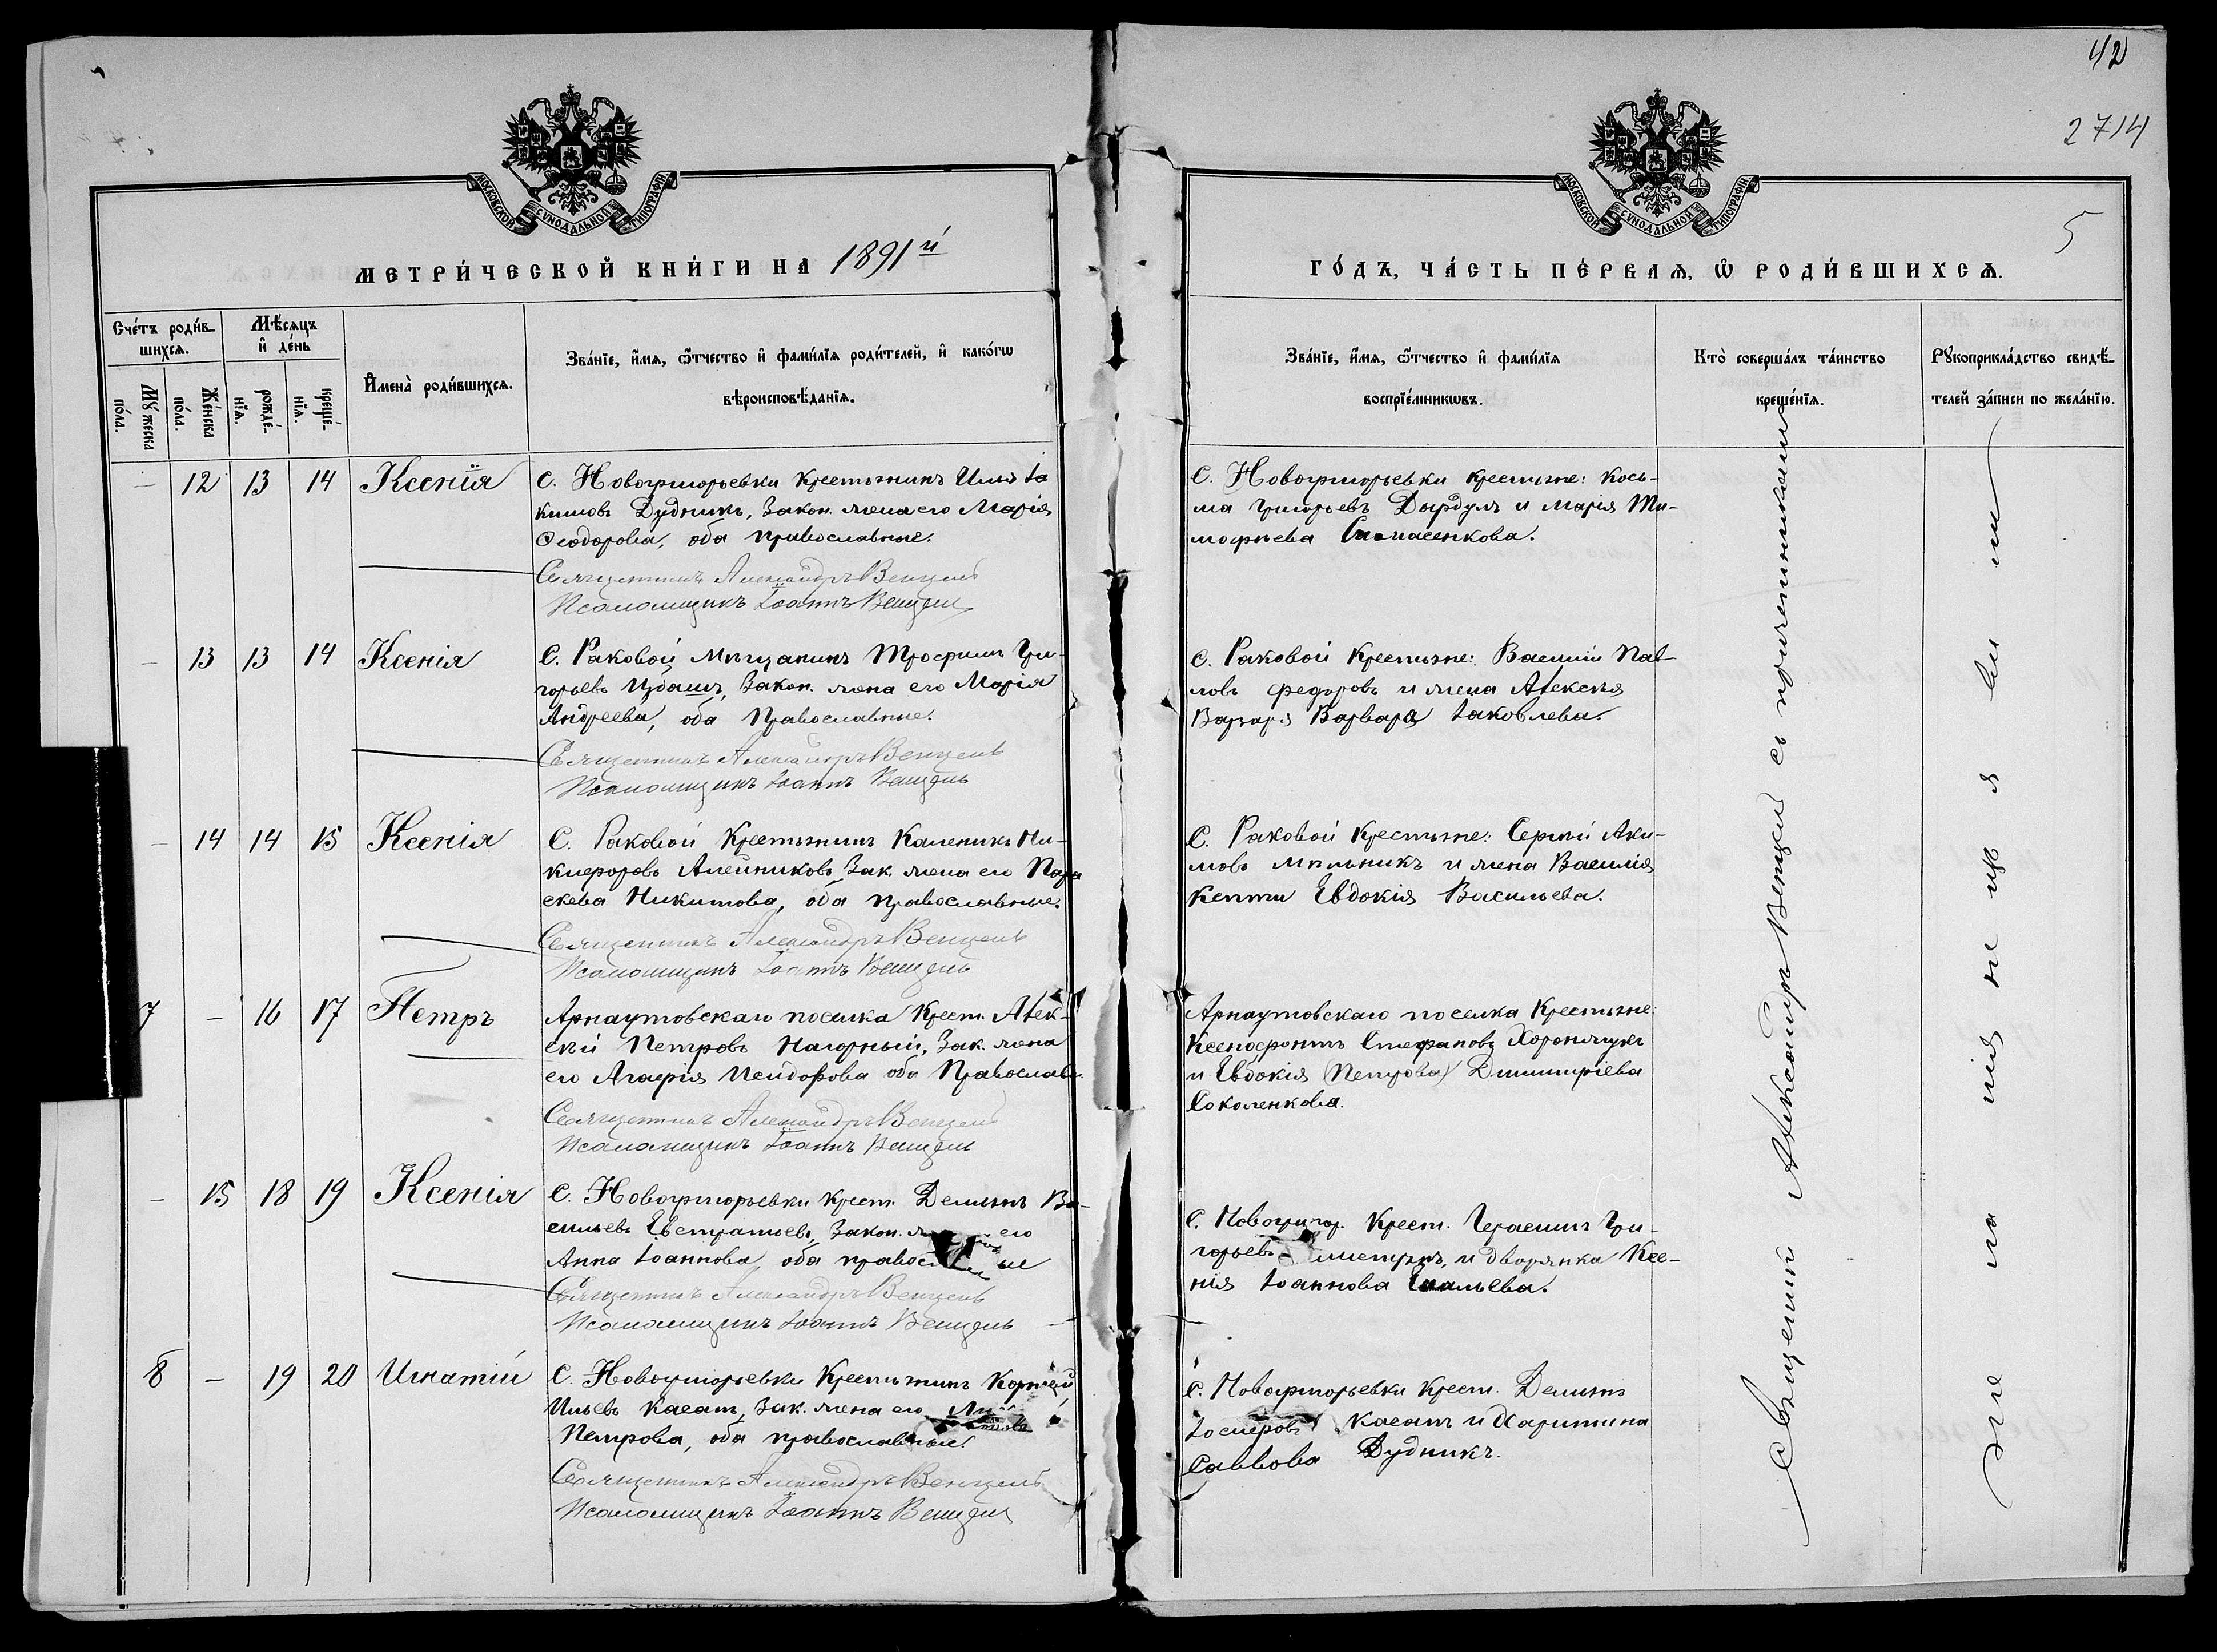 42
2714
5
МОСКОВСКОЙ СѴНОДАЛЬНОЙ ТИПОГРАФІИ
МОСКОВСКОЙ СѴНОДАЛЬНОЙ ТИПОГРАФІИ
МЕТРИ́ЧЕСКОЙ КНИ́ГИ НА 1891й
ГО́ДЪ, ЧА́СТЬ ПЕ́РВАѦ, Ѿ РОДИ́ВШИХСѦ.
Сче́тъ роди́в-
шихсѧ.
Мѣ́сѧцъ
и҆ де́нь
Мꙋ́жеска
по́ла.
Же́нска
по́ла.
рожде́-
нїѧ.
креще́-
нїѧ.
И҆мена̀ роди́вшихсѧ.
Зва́нїе, и҆́мѧ, ѻ҆́тчество и҆ фами́лїѧ роди́телей, и҆ како́гѡ
вѣроисповѣ́данїѧ.
Зва́нїе, и҆́мѧ, ѻ҆́тчество и҆ фами́лїѧ
воспрїе́мникѡвъ.
Кто̀ соверша́лъ та́инство
креще́нїѧ.
Рꙋкоприкла́дство свидѣ́-
телей за́писи по жела́нїю.
— 12 13 14 Ксенія
С. Новогригорьевки Крестьянинъ Илья Іа
кимовъ Дудникъ, Закон. жена его Марія
Ѳеодорова, оба православные.
Священникъ Александръ Венцель
Псаломщикъ Іоаннъ Венцель
С. Новогригорьевки крестьяне: Кось-
ма Григорьевъ Дырдулъ и Марія Ти-
мофѣева
— 13 13 14 Ксенія
С. Раковой Мѣщанинъ Трофимъ Гри-
горьевъ Цубанъ, Закон. жена его Марія
Андреева, оба Православные.
Священникъ Александръ Венцель
Псаломщикъ Іоаннъ Венцель
С. Раковой Крестьяне: Василій Пав-
ловъ Федоровъ и жена Алексѣя
Варвара Іаковлева.
— 14 14 15 Ксенія
С. Раковой Крестьянинъ Каленикъ Ни-
кифоровъ Алейниковъ, Зак. жена его Пара
скева Никитова, оба православные.
Священникъ Александръ Венцель
Псаломщикъ Іоаннъ Венцель
С. Раковой Крестьяне: Сергій Аки-
мовъ Мельникъ и жена Василія
Евдокія Васильева.
7 — 16 17 Петръ
Арнаутовскаго поселка Крест. Алек-
сѣй Петровъ Нагорный, Зак. жена
его Агафія Исидорова оба Православн.
Священникъ Александръ Венцель
Псаломщикъ Іоаннъ Венцель
Арнаутовскаго поселка Крестьяне:
Ксенофонтъ Стефановъ
и Евдокія (Петрова) Димитріева
Соколенкова.
— 15 18 19 Ксенія
С. Новогригорьевки Крест. Демьянъ Ва-
сильевъ Евстратьевъ, Закон. его
Анна Іоаннова, оба правос
Священникъ Александръ Венцель
Псаломщикъ Іоаннъ Венцель
С. Новогригор. Крест. Герасимъ Гри-
горьевъ и дворянка Ксе-
нія Іоаннова
8 — 19 20 Игнатій
С. Новогригорьевки Крестьянинъ Корнѣй
Ильевъ Касап, Зак. жена его
Петрова, оба православные.
Священникъ Александръ Венцель
Псаломщикъ Іоаннъ Венцель
С. Новогригорьевки Крест. Демьянъ
Іосифовъ Касапъ и Харитина
Саввова Дудникъ.
Священникъ Александръ Венцель съ причетниками